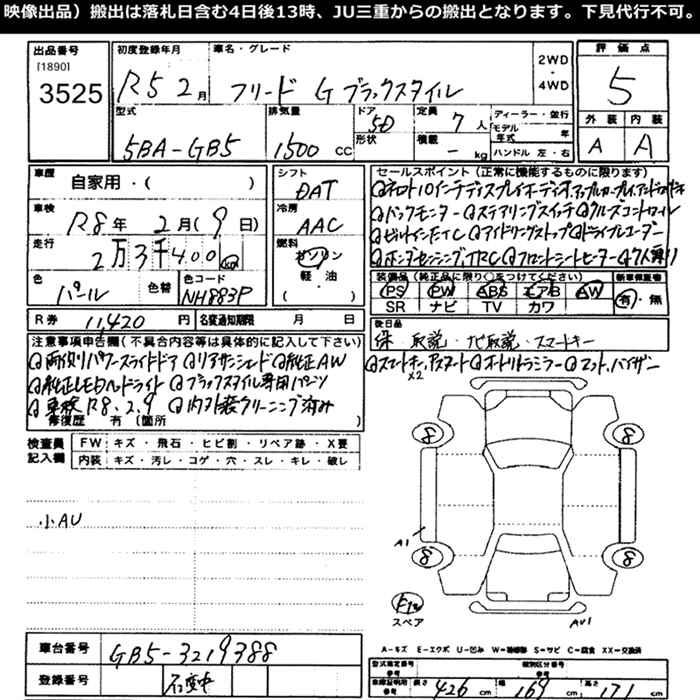 映像出品）搬出は落札日含む4日後13時、JU三重からの搬出となります。下見代行不可。
出品番号 初度登録年月 車名・グレード 評価点
[1890]
3525 R5 2月 フリード G ブラックスタイル 2WD・4WD 5
型式 排気量 ドア形状 定員 積載 ディーラー・並行 外装 内装
5BA-GB5 1500 cc 5D 7人 - kg モデル年式 年 A A
ハンドル 左・右
車歴 自家用・( ) シフト DAT
車検 R8年 2月(9日) 冷房 AAC
走行 2万3千400 km 燃料 ガソリン 軽・油 ( )
色 パール 色替 色コード NH883P
セールスポイント（正常に機能するものに限ります）
バックモニター ステアリングスイッチ クルーズコントロール
ビルトインETC アイドリングストップ ドライブレコーダー
ホンダセンシング TRC フロントシートヒーター 7人乗り
装備品（純正品に限り○をつけてください） 新車保証書
PS PW ABS エアB AW 有・無
SR ナビ TV カワ
R券 11,420円 名変通知期限 月 日
後日品
保 取説・ナビ取説・スマートキー
x2
注意事項申告欄（不具合内容等は具体的に記入して下さい）
両側パワースライドドア リアサンシェード 純正AW
純正LEDヘッドライト ブラックスタイル専用パーツ
車検R8.2.9 内外装クリーニング済み
修復歴 有（箇所
検査員記入欄 FW キズ・飛石・ヒビ割・リペア跡・X要
内装 キズ・汚レ・コゲ・穴・スレ・キレ・破レ
小AU
8 8
A1 8 8
スペア AU1
A=キズ E=エクボ U=凹み W=補修跡 S=サビ C=腐食 XX=交換済
車台番号 GB5-3219388
登録番号 名変中
型式指定番号 類別区分番号
車検証明用参考 長さ 426 cm 幅 169 cm 高さ 171 cm